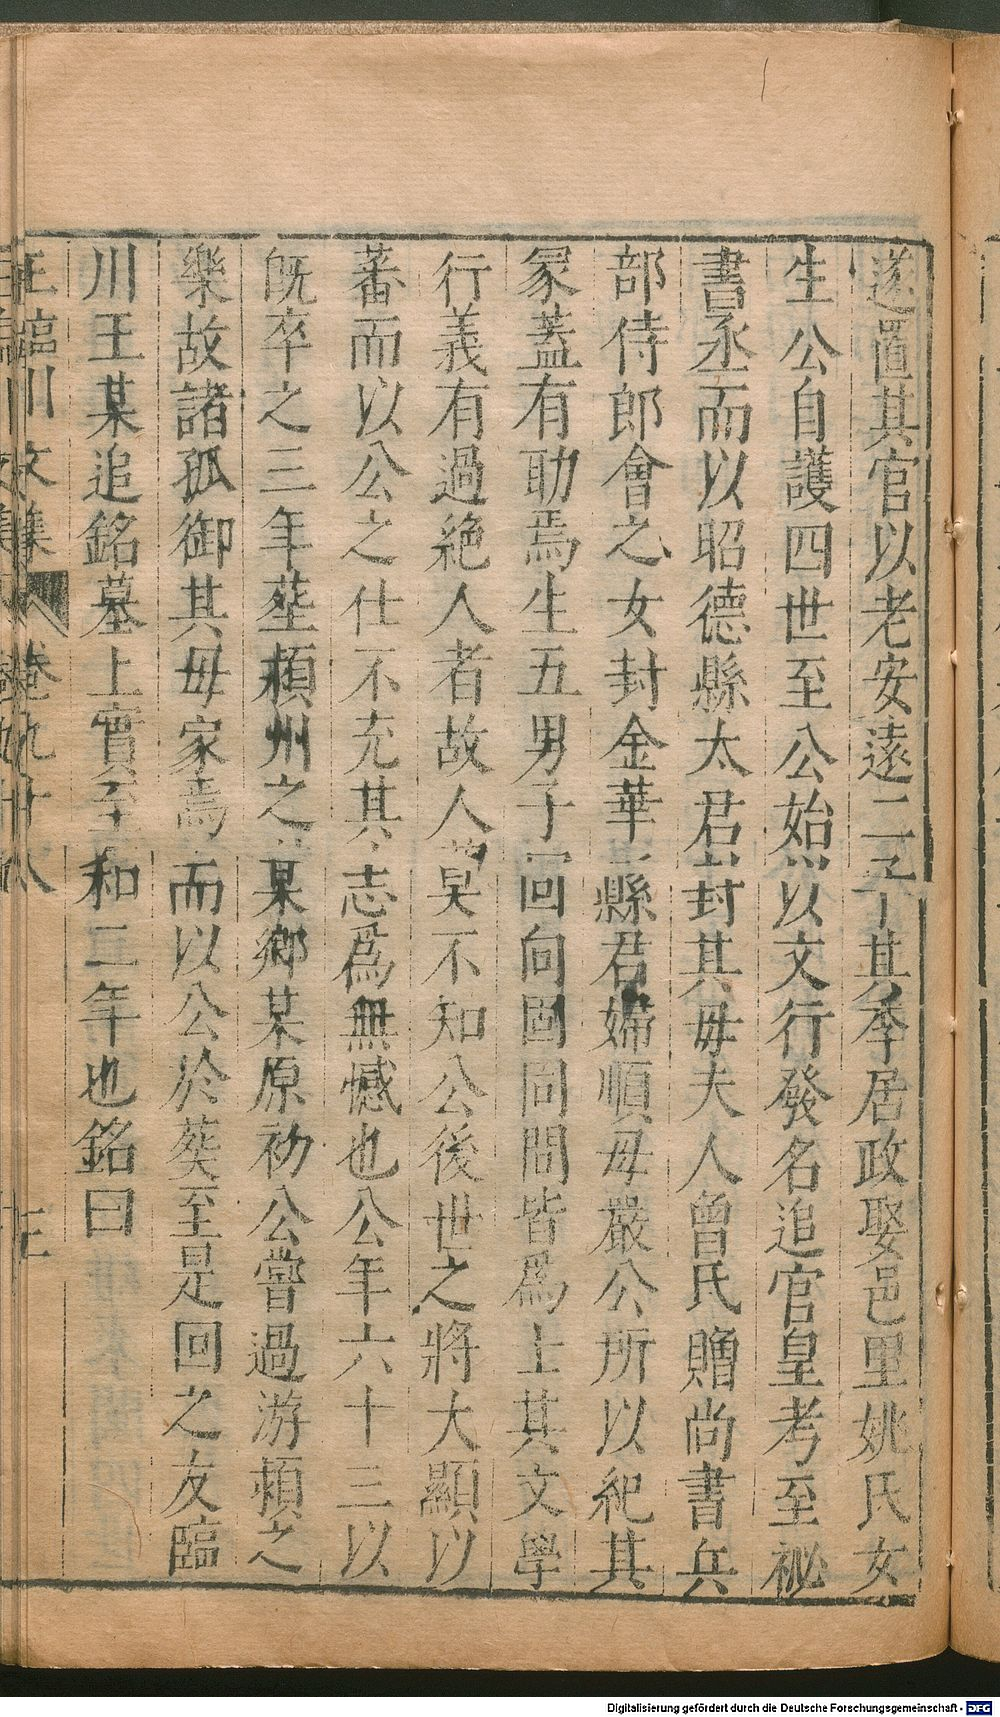 遂置其官以老安遠二子其季居政娶邑里姚氏女
生公自護四世至公始以文行發名追官皇考至祕
書丞而以昭德縣太君封其母夫人曾氏贈尚書兵
部侍郎會之女封金華縣君婦順母嚴公所以紀其
冡蓋有助焉生五男子回向固同問皆爲士其文學
行義有過絶人者故人莫不知公後世之將大顯以
蕃而以公之仕不充其志爲無憾也公年六十三以
旣卒之三年塟頴州之某鄉某原初公嘗過游頴之
樂故諸孤御其母家焉而以公於葬至是回之友臨
川王某追銘墓上實至和二年也銘曰
王臨川文集 卷九十八 三
Digitalisierung gefördert durch die Deutsche Forschungsgemeinschaft - DFG